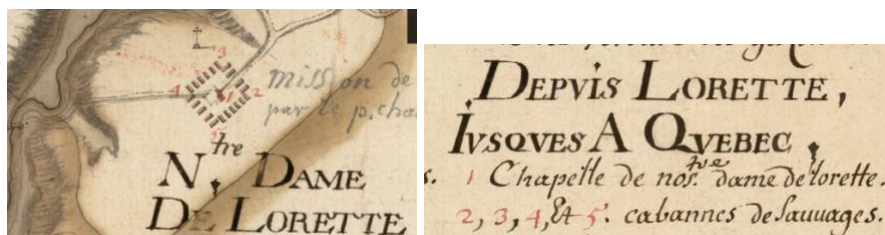 3
4 1 2
5
mission de
par le p. cha
N.tre DAME
DE LORETTE
DEPVIS LORETTE,
IVSQVES A QVEBEC,
1 Chapelle de nos.tre dame de lorette.
2, 3, 4, Et 5. cabannes de Sauuages.